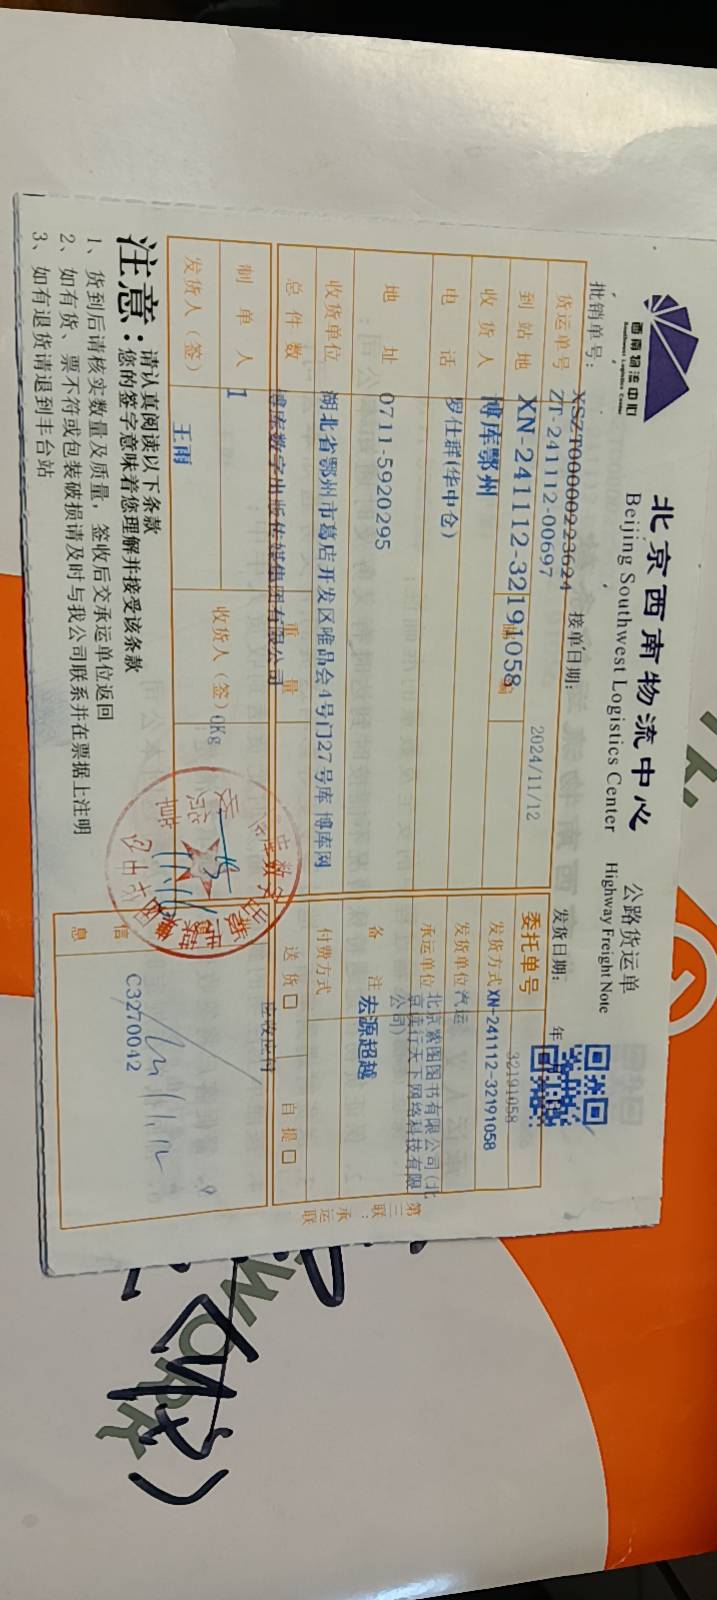 西南物流中心
Southwest Logistics Center
北京西南物流中心 公路货运单
Beijing Southwest Logistics Center Highway Freight Note
批销单号: XSZT00000223624 接单日期: 2024/11/12 发货日期: 年
货运单号 ZT-241112-00697
委托单号 32191058
到站地 XN-241112-32191058
发货方式 XN-241112-32191058
收货人 博库鄂州
发货单位 汽运
电话 罗仕群(华中仓)
承运单位 北京紫图图书有限公司(北京读行天下网络科技有限公司)
地址 0711-5920295
备注 宏源超越
收货单位 湖北省鄂州市葛店开发区唯品会4号门27号库 博库网
付费方式
总件数 博库数字出版传媒集团有限公司
重量
送货□ 自提□
应收应付
制单人 1
收货人(签) 0Kg
发货人(签) 王雨
信息
C3270042
第三联:承运联
注意: 请认真阅读以下条款
您的签字意味着您理解并接受该条款
1、货到后请核实数量及质量,签收后交承运单位返回
2、如有货、票不符或包装破损请及时与我公司联系并在票据上注明
3、如有退货请退到丰台站
WORK